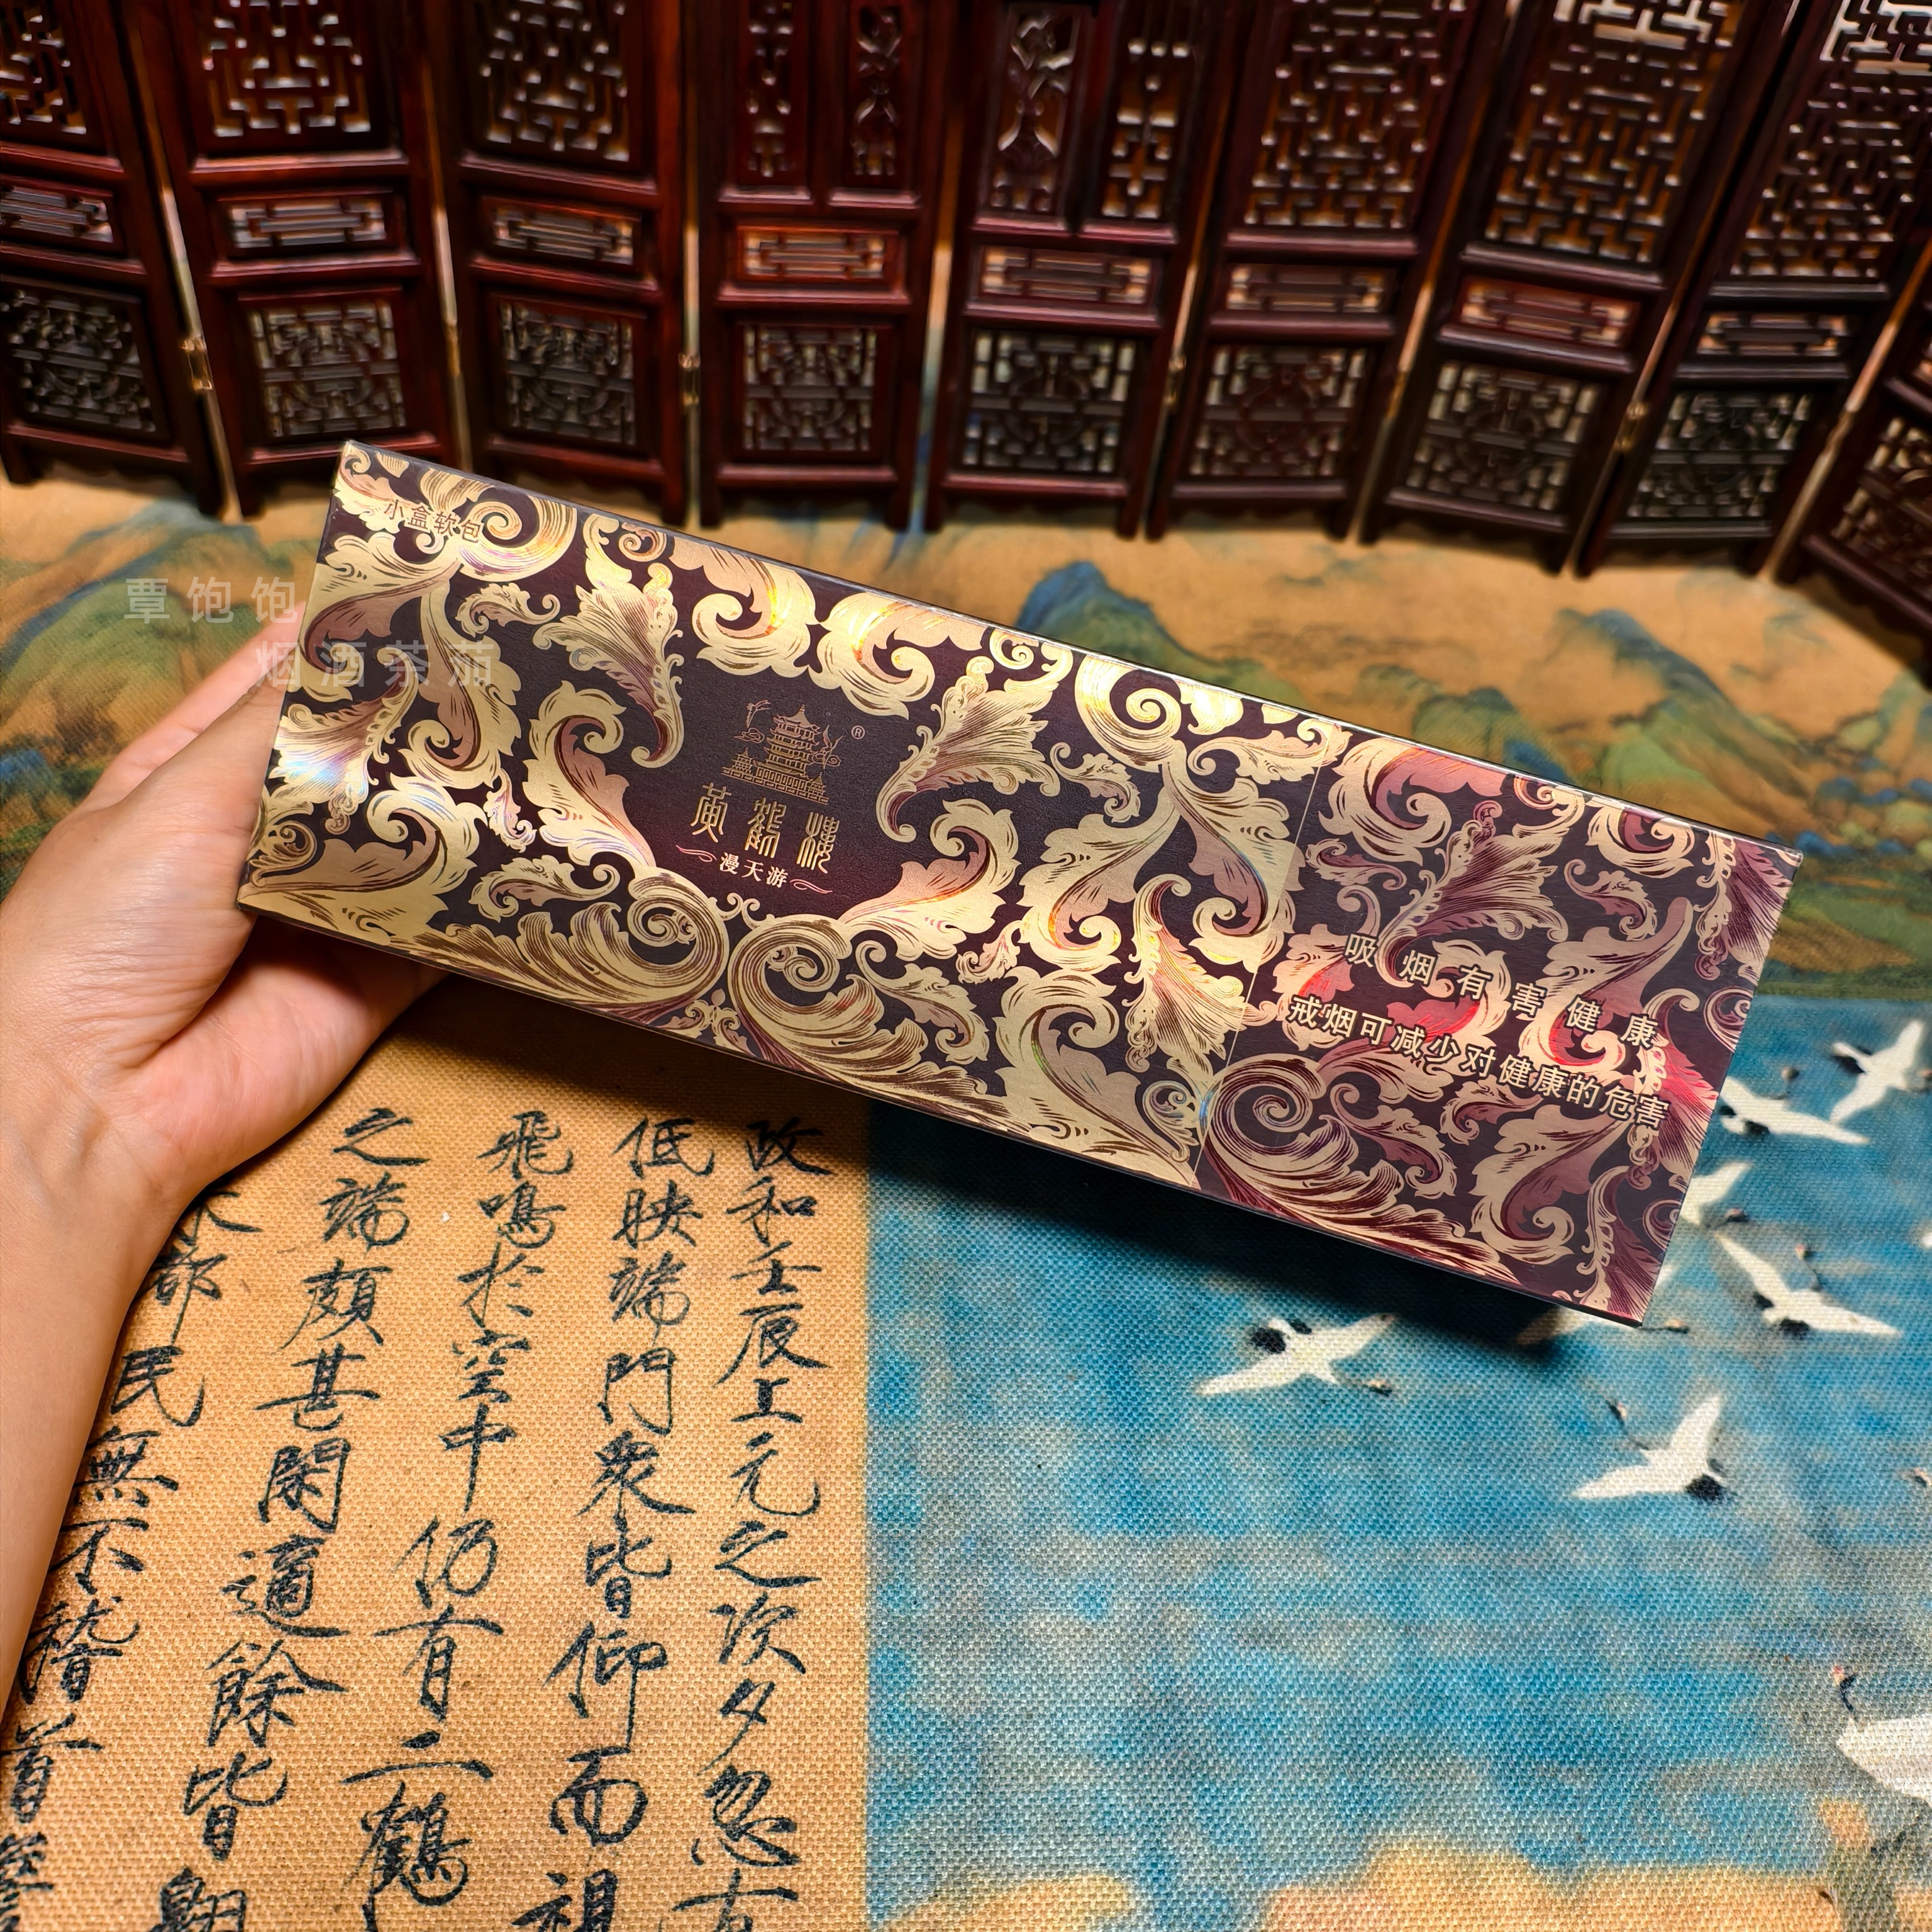 小盒软包
覃饱饱
烟酒茶茄
黄鶴樓®
漫天游
吸烟有害健康
戒烟可减少对健康的危害
政和壬辰上元之次夕忽有
低映端門衆皆仰而視
飛鳴於空中仍有二鶴
之端頗甚閑適餘皆翺
都民無不稽首